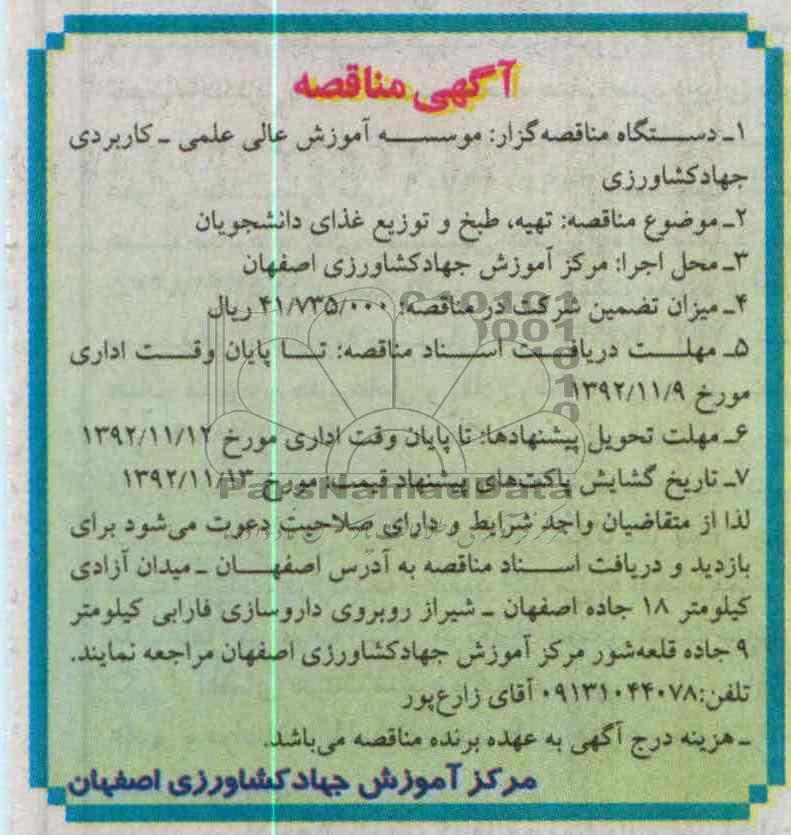 آگهی مناقصه
۱ـ دستگاه مناقصه‌گزار: موسسه آموزش عالی علمی ـ کاربردی
جهادکشاورزی
۲ـ موضوع مناقصه: تهیه، طبخ و توزیع غذای دانشجویان
۳ـ محل اجرا: مرکز آموزش جهادکشاورزی اصفهان
۴ـ میزان تضمین شرکت در مناقصه: ۴۱/۷۳۵/۰۰۰ ریال
۵ـ مهلت دریافت اسناد مناقصه: تا پایان وقت اداری
مورخ ۱۳۹۲/۱۱/۹
۶ـ مهلت تحویل پیشنهادها: تا پایان وقت اداری مورخ ۱۳۹۲/۱۱/۱۲
۷ـ تاریخ گشایش پاکت‌های پیشنهاد قیمت: مورخ ۱۳۹۲/۱۱/۱۳
ParsNamadData
لذا از متقاضیان واجد شرایط و دارای صلاحیت دعوت می‌شود برای
بازدید و دریافت اسناد مناقصه به آدرس اصفهان ـ میدان آزادی
کیلومتر ۱۸ جاده اصفهان ـ شیراز روبروی داروسازی فارابی کیلومتر
۹ جاده قلعه‌شور مرکز آموزش جهادکشاورزی اصفهان مراجعه نمایند.
تلفن:۰۹۱۳۱۰۴۴۰۷۸ آقای زارع‌پور
ـ هزینه درج آگهی به عهده برنده مناقصه می‌باشد.
مرکز آموزش جهادکشاورزی اصفهان